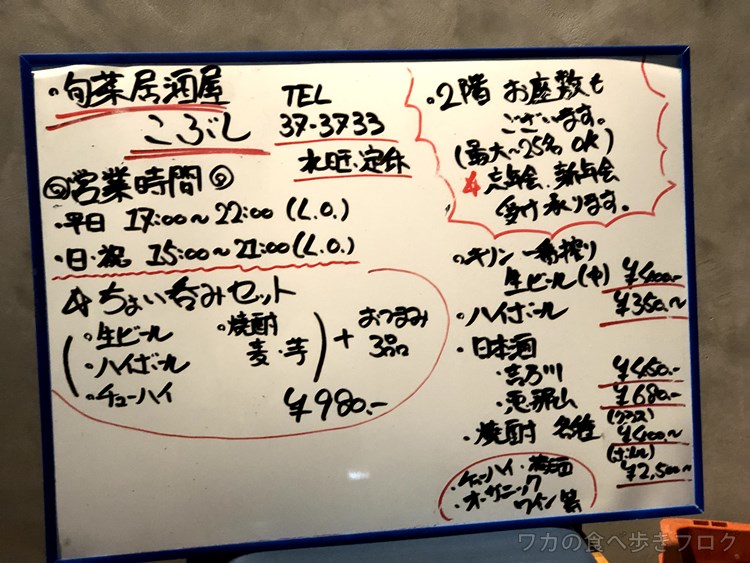 ・旬菜居酒屋
こぶし
TEL
37-3733
水旺・定休
◎営業時間◎
・平日 17:00〜22:00 (L.O.)
・日・祝 15:00〜21:00 (L.O.)
ちょい呑みセット
・生ビール
・ハイボール
・チューハイ
・焼酎
麦・芋
+ おつまみ
3品
¥980.-
・2階 お座敷も
ございます。
(最大〜25名 OK)
忘年会、新年会
受け承ります。
・キリン 一番搾り
生ビール(中) ¥400.-
・ハイボール ¥350.〜
・日本酒
・吉乃川 ¥450.-
・恵那山 ¥680.-
・焼酎 各種 (グラス) ¥400.〜
(ボトル) ¥2,500〜
・チューハイ・梅酒
・オーガニック
ワイン 等
ワカの食べ歩きブログ